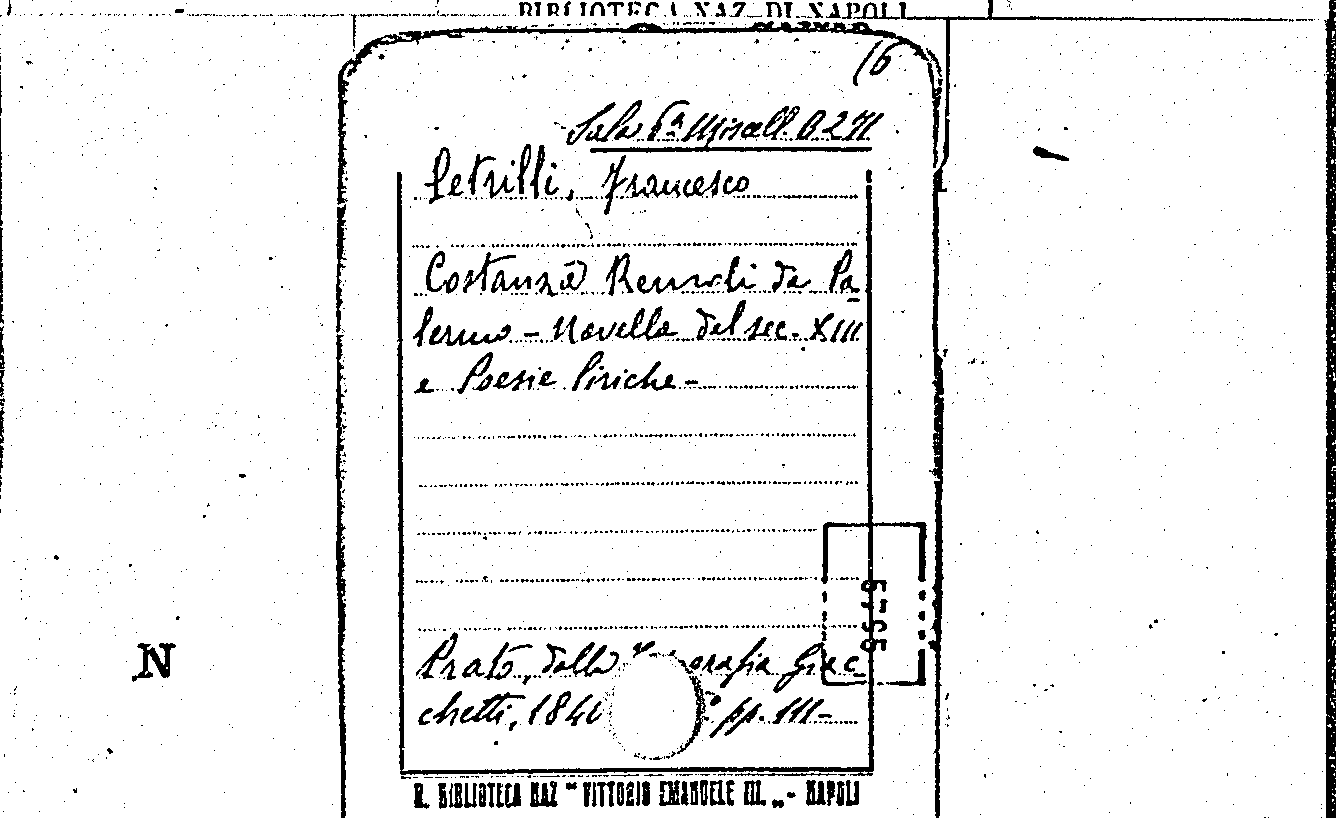 BIBLIOTECA NAZ. DI NAPOLI
16
Sala 6ª Miscell. B 271
Petrilli, Francesco
Costanza da Pa-
lermo - Novella del sec. XIII
e Poesie liriche -
Prato, dalla Giac-
chetti, 184 pp. 111-
N
R. BIBLIOTECA NAZ "VITTORIO EMANUELE III." - NAPOLI